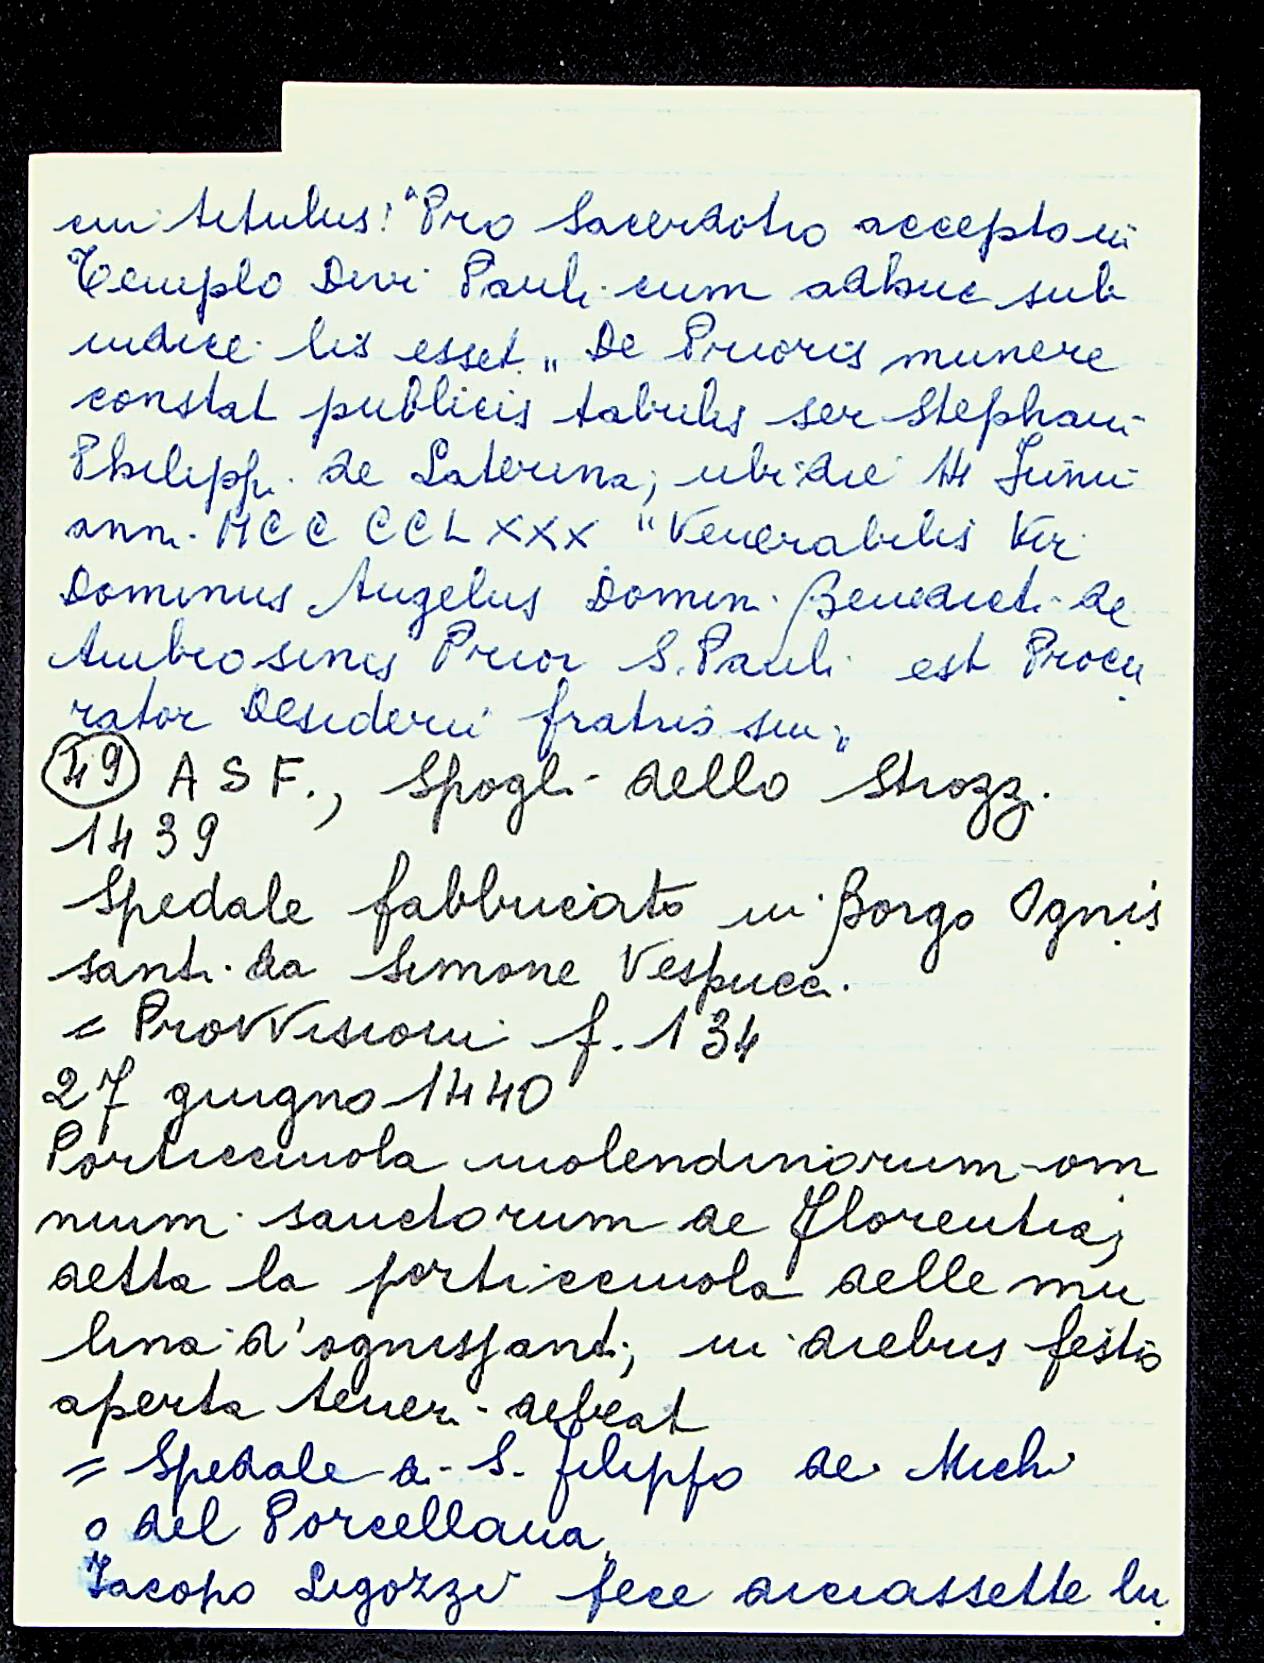 cui titulus: "Pro Sacerdotio accepto in
Templo Divi Pauli cum adhuc sub
iudice lis esset„ De Prioris munere
constat publicis tabulis ser Stephani
Philippi de Laterina; ubi die 14 Junii
ann. MCCCCLXXX "Venerabilis Vir
Dominus Angelus Domini Benedicti de
Ambrosinis Prior S. Pauli est Procu
rator Desiderii fratris sui„
(49) A S F., Spogli dello Strozzi.
1439
Spedale fabbricato in Borgo Ognis
santi da Simone Vespucci.
= Provvisioni f. 134
27 giugno 1440
Porticciuola molendinorum om
nium sanctorum de Florentia;
detta la porticciuola delle mu
lina d'ognissanti; in diebus festis
aperta teneri debeat
= Spedale di S. Filippo de Michi
o del Porcellana
Jacopo Ligozzi fece diciassette lu